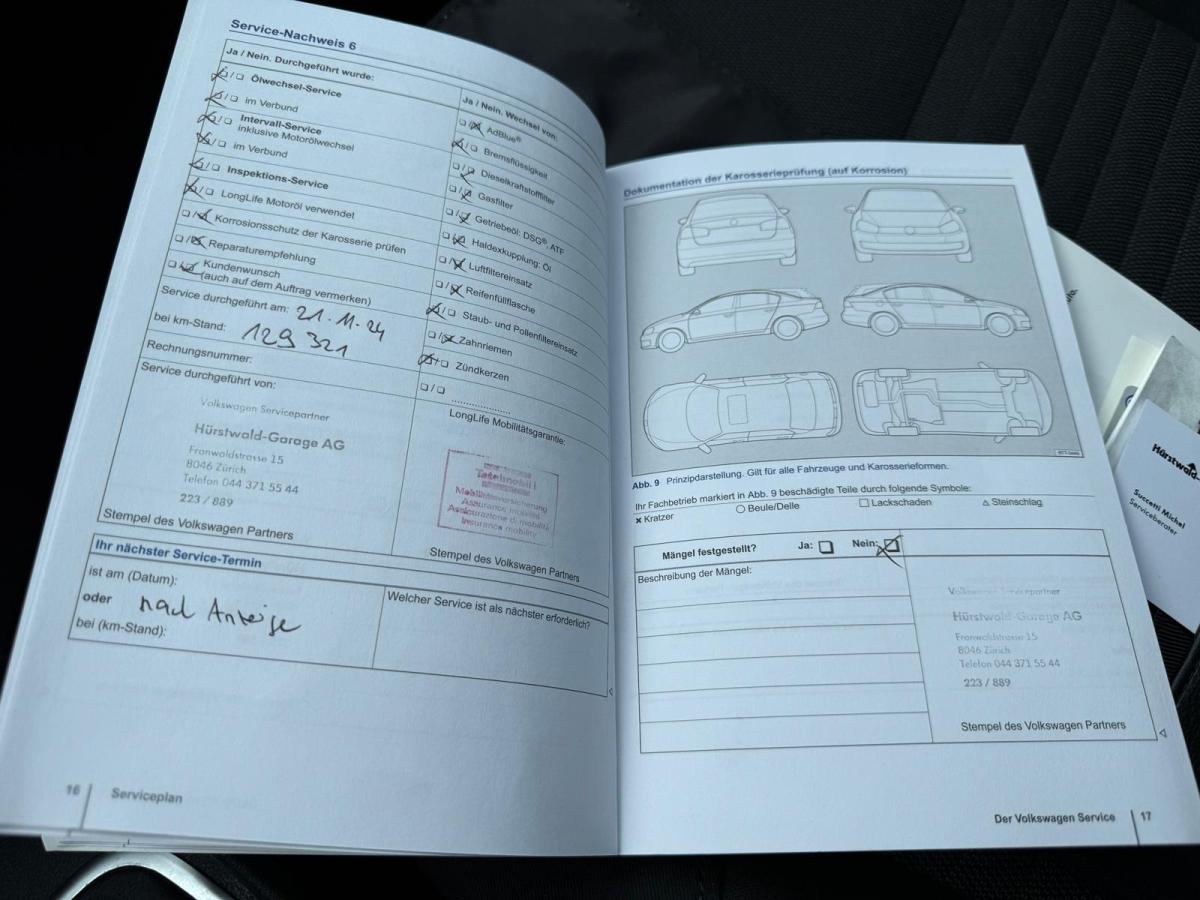 Service-Nachweis 6
Ja / Nein. Durchgeführt wurde:
☒/☐ Ölwechsel-Service
☒/☐ im Verbund
☒/☐ Intervall-Service
inklusive Motorölwechsel
☒/☐ im Verbund
☒/☐ Inspektions-Service
☒/☐ LongLife Motoröl verwendet
☐/☒ Korrosionsschutz der Karosserie prüfen
☐/☒ Reparaturempfehlung
☐/☒ Kundenwunsch
(auch auf dem Auftrag vermerken)
Service durchgeführt am: 21.11.24
bei km-Stand: 129 321
Rechnungsnummer:
Service durchgeführt von:
Volkswagen Servicepartner
Hürstwald-Garage AG
Fronwaldstrasse 15
8046 Zürich
Telefon 044 371 55 44
223 / 889
Stempel des Volkswagen Partners
Ja / Nein. Wechsel von:
☐/☒ AdBlue®
☒/☐ Bremsflüssigkeit
☐/☒ Dieselkraftstofffilter
☐/☒ Gasfilter
☐/☒ Getriebeöl: DSG®, ATF
☐/☒ Haldexkupplung: Öl
☐/☒ Luftfiltereinsatz
☐/☒ Reifenfüllflasche
☒/☐ Staub- und Pollenfiltereinsatz
☐/☒ Zahnriemen
☒/☐ Zündkerzen
☐/☐ ....................
LongLife Mobilitätsgarantie:
Totalmobil!
Mobilitätsversicherung
Assurance mobilité
Assicurazione di mobilità
Insurance mobility
Stempel des Volkswagen Partners
Ihr nächster Service-Termin
ist am (Datum):
oder nach Anzeige
bei (km-Stand):
Welcher Service ist als nächster erforderlich?
16 Serviceplan
Dokumentation der Karosserieprüfung (auf Korrosion)
Abb. 9 Prinzipdarstellung. Gilt für alle Fahrzeuge und Karosserieformen.
Ihr Fachbetrieb markiert in Abb. 9 beschädigte Teile durch folgende Symbole:
✖ Kratzer ○ Beule/Delle ☐ Lackschaden △ Steinschlag
Mängel festgestellt? Ja: ☐ Nein: ☒
Beschreibung der Mängel:
Volkswagen Servicepartner
Hürstwald-Garage AG
Fronwaldstrasse 15
8046 Zürich
Telefon 044 371 55 44
223 / 889
Stempel des Volkswagen Partners
Der Volkswagen Service 17
Hürstwald-
Succetti Michel
Serviceberater